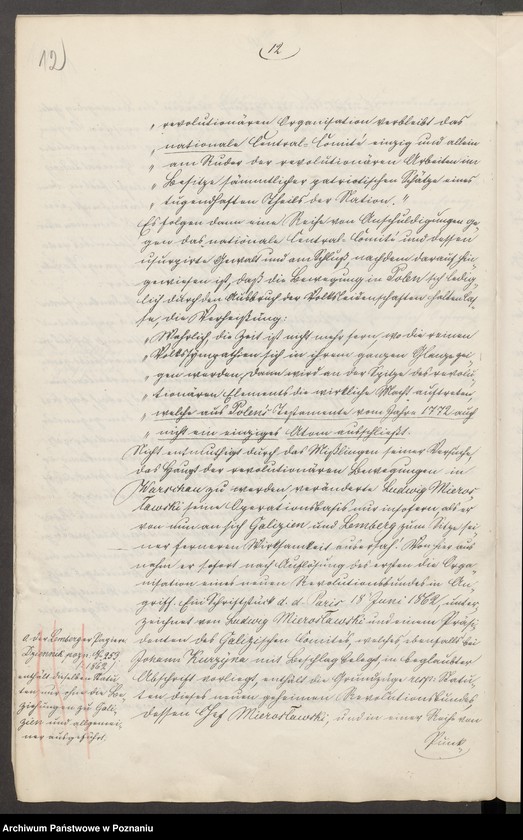 12)
12
„ revolutionären Organisation verbleibt das
„ nationale Central-Comité einzig und allein
„ am Ruder der revolutionären Arbeiten im
„ Besitze sämmtlicher patriotischen Schätze eines
„ tugendhaften Theils der Nation."
Es folgen dann eine Reihe von Anschuldigungen ge-
gen das nationale Central-Comité und dessen
usurpirte Gewalt und am Schluß, nachdem darauf hin-
gewiesen ist, daß die Bewegung in Polen sich ledig-
lich durch den Ausbruch der Volksleidenschaften halten las-
se, die Verheißung:
„ Wahrlich die Zeit ist nicht mehr fern, wo die reinen
„ Volkssympathien sich in ihrem ganzen Glanze zei-
„ gen werden, dann wird an der Spitze des revolu-
„ tionären Elements die wirkliche Macht auftreten,
„ welche aus Polens Testamente vom Jahre 1772 auch
„ nicht ein einziges Atom ausschließt.
Nicht entmuthigt durch das Mißlingen seiner Versuche,
das Haupt der revolutionären Bewegungen in
Warschau zu werden, veränderte Ludwig Mieros-
ławski seine Operationsbasis nur insofern, als er
von nun an sich Galizien und Lemberg zum Sitze sei-
ner ferneren Wirksamkeit ausersah. Von hier aus
nahm er sofort nach Auflösung des ersten die Orga-
nisation eines neuen Revolutionsbundes in An-
griff. Ein Schriftstück d. d. Paris 18 Juni 1862, unter-
zeichnet von Ludwig Mierosławski und einem Präsi-
denten des Galizischen Comités, welches ebenfalls bei
Johann Kurzyna mit Beschlag belegt, in beglaubter
Abschrift vorliegt, enthält die Grundzüge resp. Statu-
ten dieses neuen geheimen Revolutionsbundes,
dessen Chef Mierosławski, und in einer Reihe von
Punk-
a. der Lemberger
Dziennik
1862)
enthält dieselben Statu-
ten nur ohne die Be-
ziehungen zu Gali-
zien und allgemei-
ner ausgeführt.
Archiwum Państwowe w Poznaniu